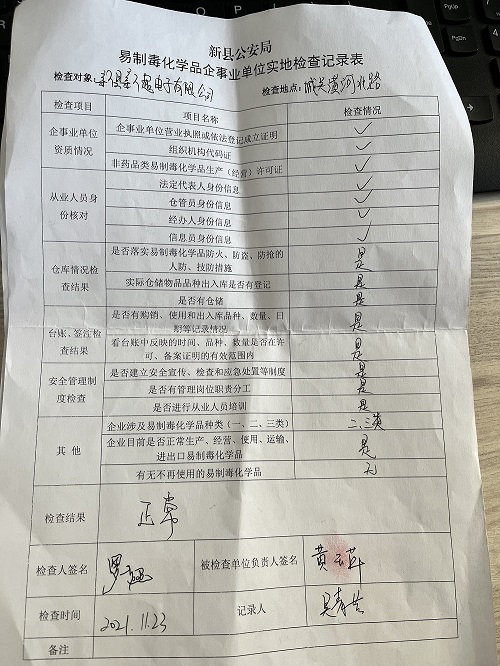 新县公安局
易制毒化学品企事业单位实地检查记录表
检查对象: 电子有限公司 检查地点: 城关潢河北路
检查项目 项目名称 检查情况
企事业单位资质情况 企事业单位营业执照或依法登记成立证明 ✓
组织机构代码证 ✓
非药品类易制毒化学品生产(经营)许可证 ✓
从业人员身份核对 法定代表人身份信息 ✓
仓管员身份信息 ✓
经办人身份信息 ✓
信息员身份信息 ✓
仓库情况检查结果 是否落实易制毒化学品防火、防盗、防抢的人防、技防措施 是
实际仓储物品品种出入库是否有登记 是
是否有仓储 是
台账、签注检查结果 是否有购销、使用和出入库品种、数量、日期等记录情况 是
看台账中反映的时间、品种、数量是否在许可、备案证明的有效范围内 是
安全管理制度检查 是否建立安全宣传、检查和应急处置等制度 是
是否有管理岗位职责分工 是
是否进行从业人员培训 是
其他 企业涉及易制毒化学品种类(一、二、三类) 二、三类
企业目前是否正常生产、经营、使用、运输、进出口易制毒化学品 是
有无不再使用的易制毒化学品 无
检查结果 正常
检查人签名 被检查单位负责人签名
检查时间 2021.11.23 记录人
备注